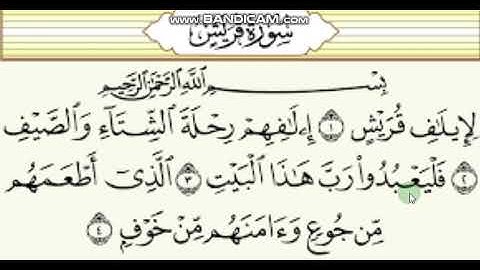 WWW.BANDICAM.COM
سورة قريش
بِسْمِ ٱللَّهِ ٱلرَّحْمَٰنِ ٱلرَّحِيمِ
لِإِيلَٰفِ قُرَيْشٍ ١ إِۦلَٰفِهِمْ رِحْلَةَ ٱلشِّتَآءِ وَٱلصَّيْفِ
٢ فَلْيَعْبُدُوا۟ رَبَّ هَٰذَا ٱلْبَيْتِ ٣ ٱلَّذِىٓ أَطْعَمَهُم
مِّن جُوعٍ وَءَامَنَهُم مِّنْ خَوْفٍۭ ٤